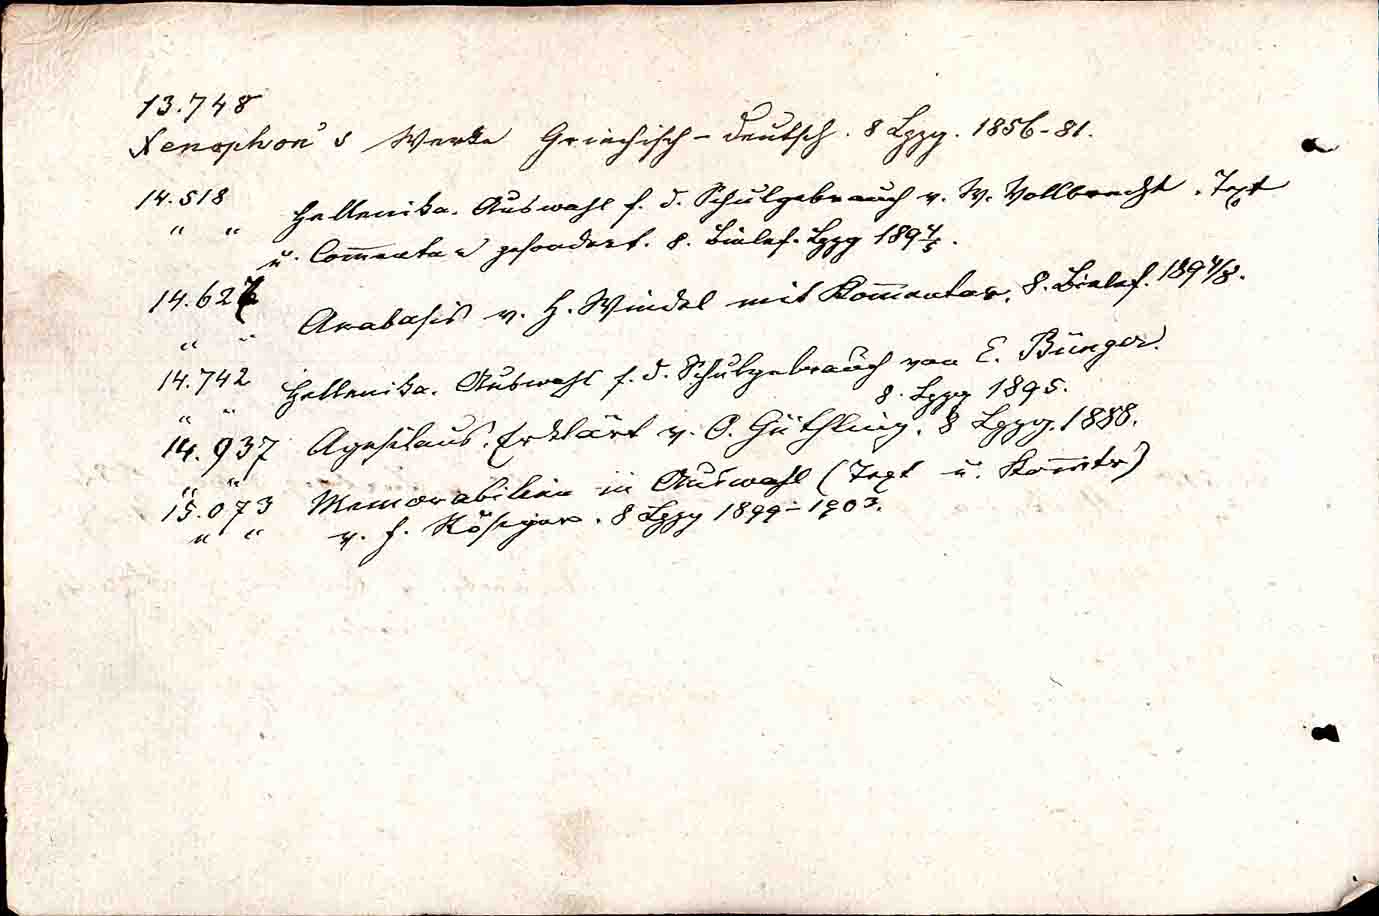 13.748
Xenophon's Werke Griechisch-Deutsch. 8 Lpzg. 1856-81.
14.518
" " Hellenika. Auswahl f. d. Schulgebrauch v. W. Vollbrecht. Text
u. Commentar gesondert. 8. Bielef. Lpzg 1894/5.
14.627
" " Anabasis v. H. Windel mit Kom̅entar. 8. Bielef. 1894/8.
14.742
" " Hellenika. Auswahl f. d. Schulgebrauch von E. Bünger.
8. Lpzg 1895.
14.937
" " Agesilaus. Erklärt v. O. Güthling. 8 Lpzg. 1888.
15.073 Memorabilien in Auswahl (Text u. Kom̅tr)
" " v. F. Rösiger. 8 Lpzg 1899-1903.